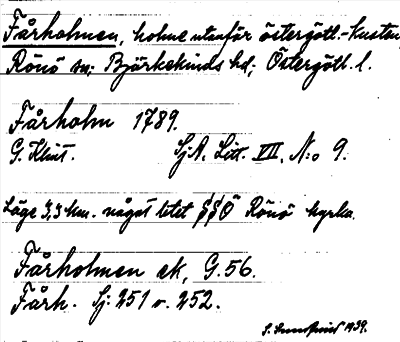 Fårholmen, holme utanför östergötl.-kusten,
Rönö sn; Björkekinds hd; Östergötl. l.
Fårholm 1789.
G. Klint. Sj.A. Litt. VII. N:o 9.
Läge 3,3 km. något litet SSÖ Rönö kyrka.
Fårholmen ek, G.56.
Fårh. Sj: 251 o. 252.
1939.